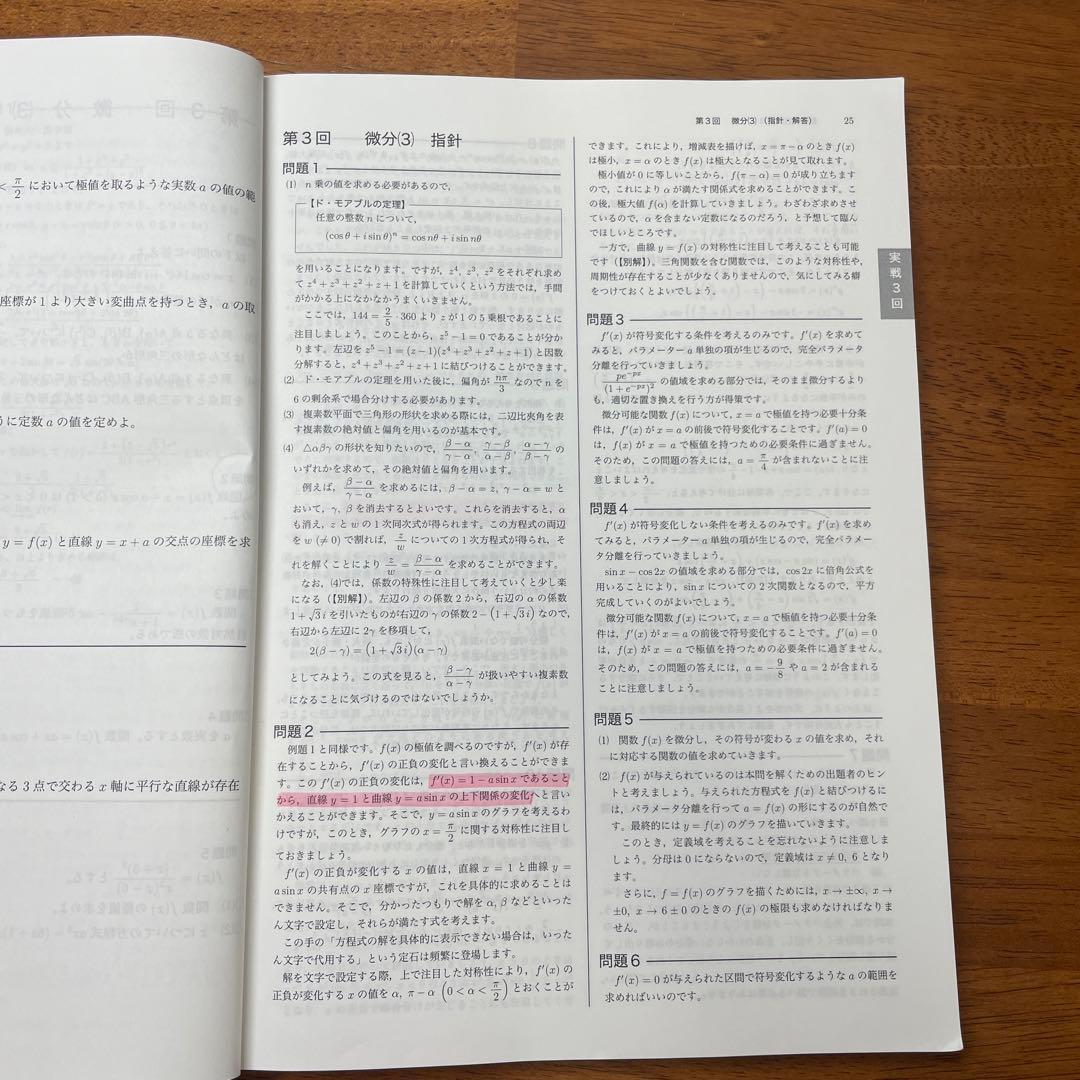 < π/2 において極値を取るような実数 a の値の範
座標が 1 より大きい変曲点を持つとき，a の取
うに定数 a の値を定めよ．
y = f(x) と直線 y = x + a の交点の座標を求
なる 3 点で交わる x 軸に平行な直線が存在
第3回 微分⑶（指針・解答） 25
実戦3回
第3回 微分⑶ 指針
問題1
⑴ n 乗の値を求める必要があるので，
【ド・モアブルの定理】
任意の整数 n について，
(cos θ + i sin θ)^n = cos nθ + i sin nθ
を用いることになります。ですが，z^4, z^3, z^2 をそれぞれ求め
て z^4 + z^3 + z^2 + z + 1 を計算していくという方法では，手間
がかかる上になかなかうまくいきません。
ここでは，144 = 2/5 · 360 より z が 1 の 5 乗根であることに
注目しましょう。このことから，z^5 − 1 = 0 であることが分か
ります。左辺を z^5 − 1 = (z − 1)(z^4 + z^3 + z^2 + z + 1) と因数
分解すると，z^4 + z^3 + z^2 + z + 1 に結びつけることができます。
⑵ ド・モアブルの定理を用いた後に，偏角が nπ/3 なので n を
6 の剰余系で場合分けする必要があります。
⑶ 複素数平面で三角形の形状を求める際には，二辺比夾角を表
す複素数の絶対値と偏角を用いるのが基本です。
⑷ △αβγ の形状を知りたいので，(β−α)/(γ−α), (γ−β)/(α−β), (α−γ)/(β−γ) の
いずれかを求めて，その絶対値と偏角を用います。
例えば，(β−α)/(γ−α) を求めるには，β − α = z, γ − α = w と
おいて，γ, β を消去するとよいです。これらを消去すると，α
も消え，z と w の 1 次同次式が得られます。この方程式の両辺
を w (≠ 0) で割れば，z/w についての 1 次方程式が得られ，そ
れを解くことにより z/w = (β−α)/(γ−α) を求めることができます。
なお，⑷では，係数の特殊性に注目して考えていくと少し楽
になる（【別解】）。左辺の β の係数 2 から，右辺の α の係数
1 + √3 i を引いたものが右辺の γ の係数 2 − (1 + √3 i) なので，
右辺から左辺に 2γ を移項して，
2(β − γ) = (1 + √3 i)(α − γ)
としてみよう。この式を見ると，(β−γ)/(α−γ) が扱いやすい複素数
になることに気づけるのではないでしょうか。
問題2
例題 1 と同様です。f(x) の極値を調べるのですが，f′(x) が存
在することから，f′(x) の正負の変化と言い換えることができま
す。この f′(x) の正負の変化は，f′(x) = 1 − a sin x であること
から，直線 y = 1 と曲線 y = a sin x の上下関係の変化へと言い
かえることができます。そこで，y = a sin x のグラフを考えるわ
けですが，このとき，グラフの x = π/2 に関する対称性に注目し
ておきましょう。
f′(x) の正負が変化する x の値は，直線 x = 1 と曲線 y =
a sin x の共有点の x 座標ですが，これを具体的に求めることは
できません。そこで，分かったつもりで解を α, β などといった
ん文字で設定し，それらが満たす式を考えます。
この手の「方程式の解を具体的に表示できない場合は，いった
ん文字で代用する」という定石は頻繁に登場します。
解を文字で設定する際，上で注目した対称性により，f′(x) の
正負が変化する x の値を α, π − α (0 < α < π/2) とおくことが
できます。これにより，増減表を描けば，x = π − α のとき f(x)
は極小，x = α のとき f(x) は極大となることが見て取れます。
極小値が 0 に等しいことから，f(π − α) = 0 が成り立ちます
ので，これにより α が満たす関係式を求めることができます。こ
の後，極大値 f(α) を計算していきましょう。わざわざ求めさせ
ているので，α を含まない定数になるのだろう，と予想して臨ん
でほしいところです。
一方で，曲線 y = f(x) の対称性に注目して考えることも可能
です（【別解】。三角関数を含む関数では，このような対称性や，
周期性が存在することが少なくありませんので，気にしてみる癖
をつけておくとよいでしょう。
問題3
f′(x) が符号変化する条件を考えるのみです。f′(x) を求めて
みると，パラメーター a 単独の項が生じるので，完全パラメータ
分離を行っていきましょう。
pe^{−px}/(1 + e^{−px})^2 の値域を求める部分では，そのまま微分するより
も，適切な置き換えを行う方が得策です。
微分可能な関数 f(x) について，x = a で極値を持つ必要十分条
件は，f′(x) が x = a の前後で符号変化することです。f′(a) = 0
は，f(x) が x = a で極値を持つための必要条件に過ぎません。
そのため，この問題の答えには，a = π/4 が含まれないことに注
意しましょう。
問題4
f′(x) が符号変化しない条件を考えるのみです。f′(x) を求め
てみると，パラメーター a 単独の項が生じるので，完全パラメー
タ分離を行っていきましょう。
sin x − cos 2x の値域を求める部分では，cos 2x に倍角公式を
用いることにより，sin x についての 2 次関数となるので，平方
完成していくのがよいでしょう。
微分可能な関数 f(x) について，x = a で極値を持つ必要十分条
件は，f′(x) が x = a の前後で符号変化することです。f′(a) = 0
は，f(x) が x = a で極値を持つための必要条件に過ぎません。
そのため，この問題の答えには，a = −9/8 や a = 2 が含まれる
ことに注意しましょう。
問題5
⑴ 関数 f(x) を微分し，その符号が変わる x の値を求め，それ
に対応する関数の値を求めていきます。
⑵ f(x) が与えられているのは本問を解くための出題者のヒン
トと考えましょう。与えられた方程式を f(x) と結びつけるに
は，パラメータ分離を行って a = f(x) の形にするのが自然で
す。最終的には y = f(x) のグラフを描いていきます。
このとき，定義域を考えることを忘れないように注意しま
しょう。分母は 0 にならないので，定義域は x ≠ 0, 6 となり
ます。
さらに，f = f(x) のグラフを描くためには，x → ±∞, x →
±0, x → 6 ± 0 のときの f(x) の極限も求めなければなりま
せん。
問題6
f′(x) = 0 が与えられた区間で符号変化するような a の範囲を
求めればいいのです。